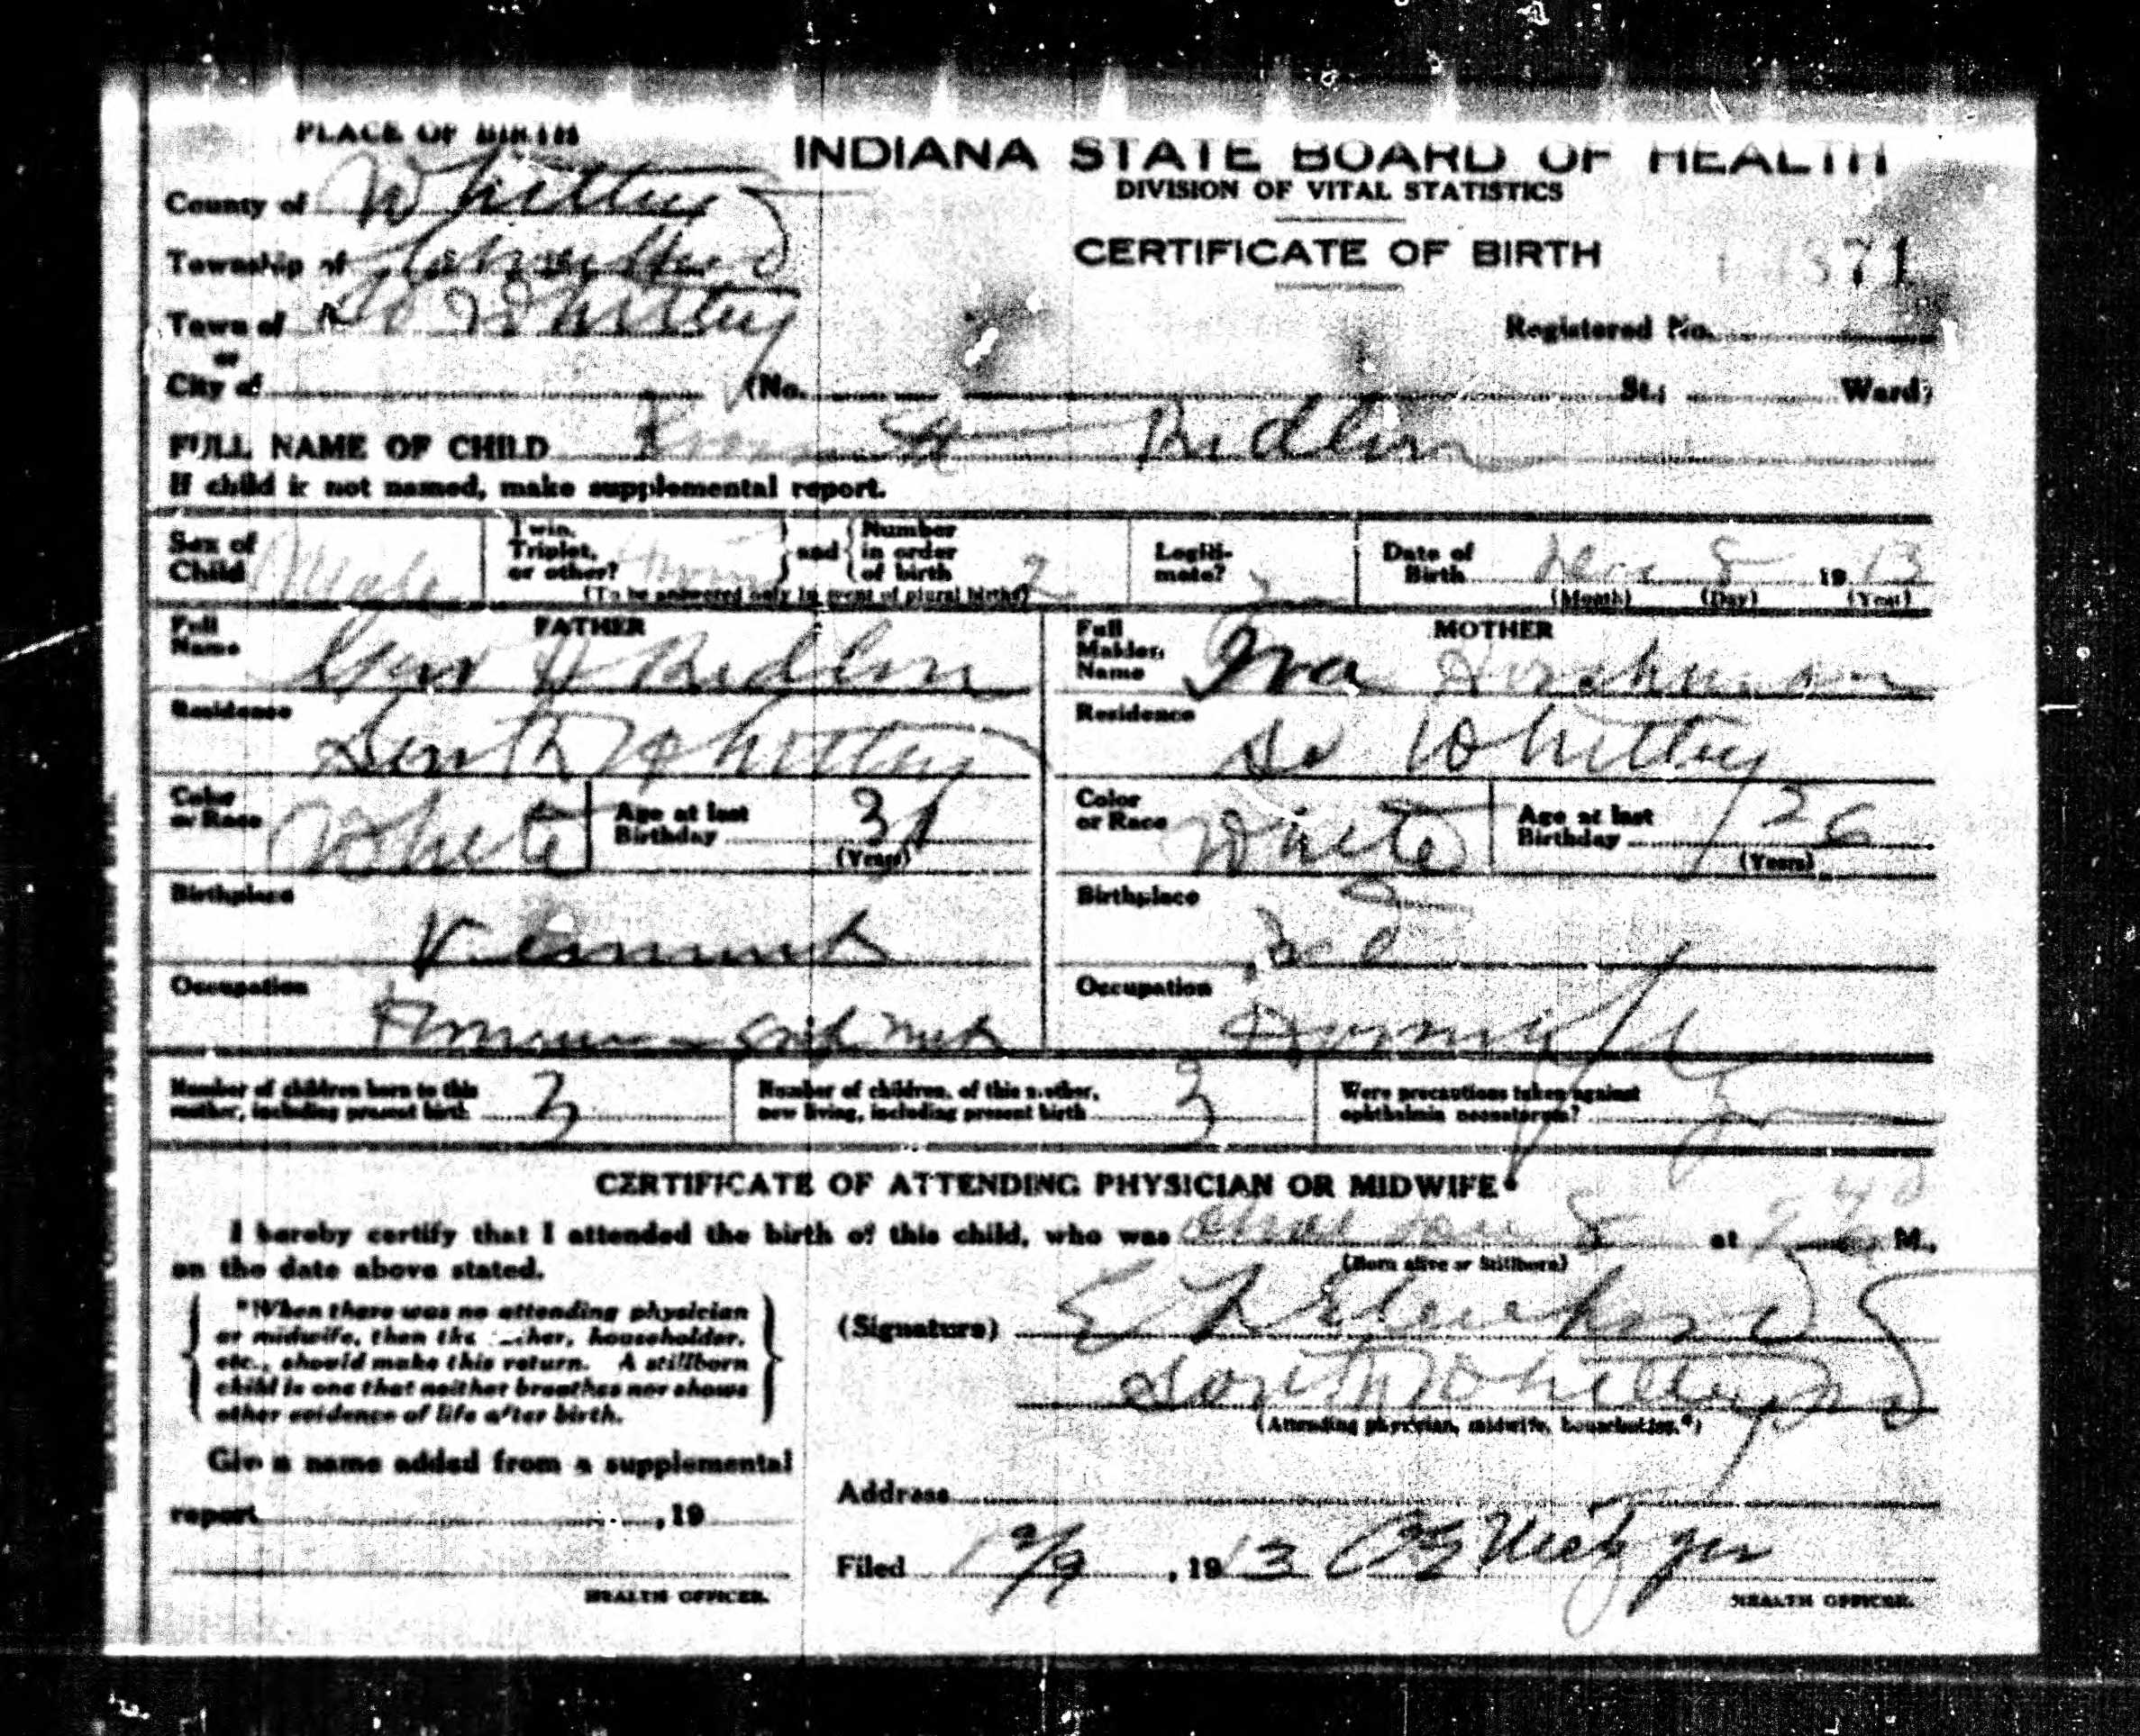 PLACE OF BIRTH
INDIANA STATE BOARD OF HEALTH
DIVISION OF VITAL STATISTICS
CERTIFICATE OF BIRTH
71
County of Whitley
Township of
Town of So Whitley
Registered No.
or
City of (No. St.; Ward)
FULL NAME OF CHILD Ridlon
If child is not named, make supplemental report.
Sex of Child Male
Twin, Triplet, or other? Twin and Number in order of birth 2
(To be answered only in event of plural births)
Legiti-mate?
Date of Birth Dec 8 1913
(Month) (Day) (Year)
FATHER
Full Name Ridlon
Residence South Whitley
Color or Race White
Age at last Birthday 31
(Years)
Birthplace Vermont
Occupation
MOTHER
Full Maiden Name Iva
Residence So Whitley
Color or Race White
Age at last Birthday 26
(Years)
Birthplace Ind
Occupation
Number of children born to this mother, including present birth 3
Number of children, of this mother, now living, including present birth 3
Were precautions taken against ophthalmia neonatorum?
CERTIFICATE OF ATTENDING PHYSICIAN OR MIDWIFE*
I hereby certify that I attended the birth of this child, who was at M.,
(Born alive or Stillborn)
on the date above stated.
*When there was no attending physician
or midwife, then the father, householder,
etc., should make this return. A stillborn
child is one that neither breathes nor shows
other evidence of life after birth.
(Signature)
South Whitley Ind
(Attending physician, midwife, householder.*)
Given name added from a supplemental
report , 19
HEALTH OFFICER.
Address
Filed 12/9, 1913 Metzger
HEALTH OFFICER.